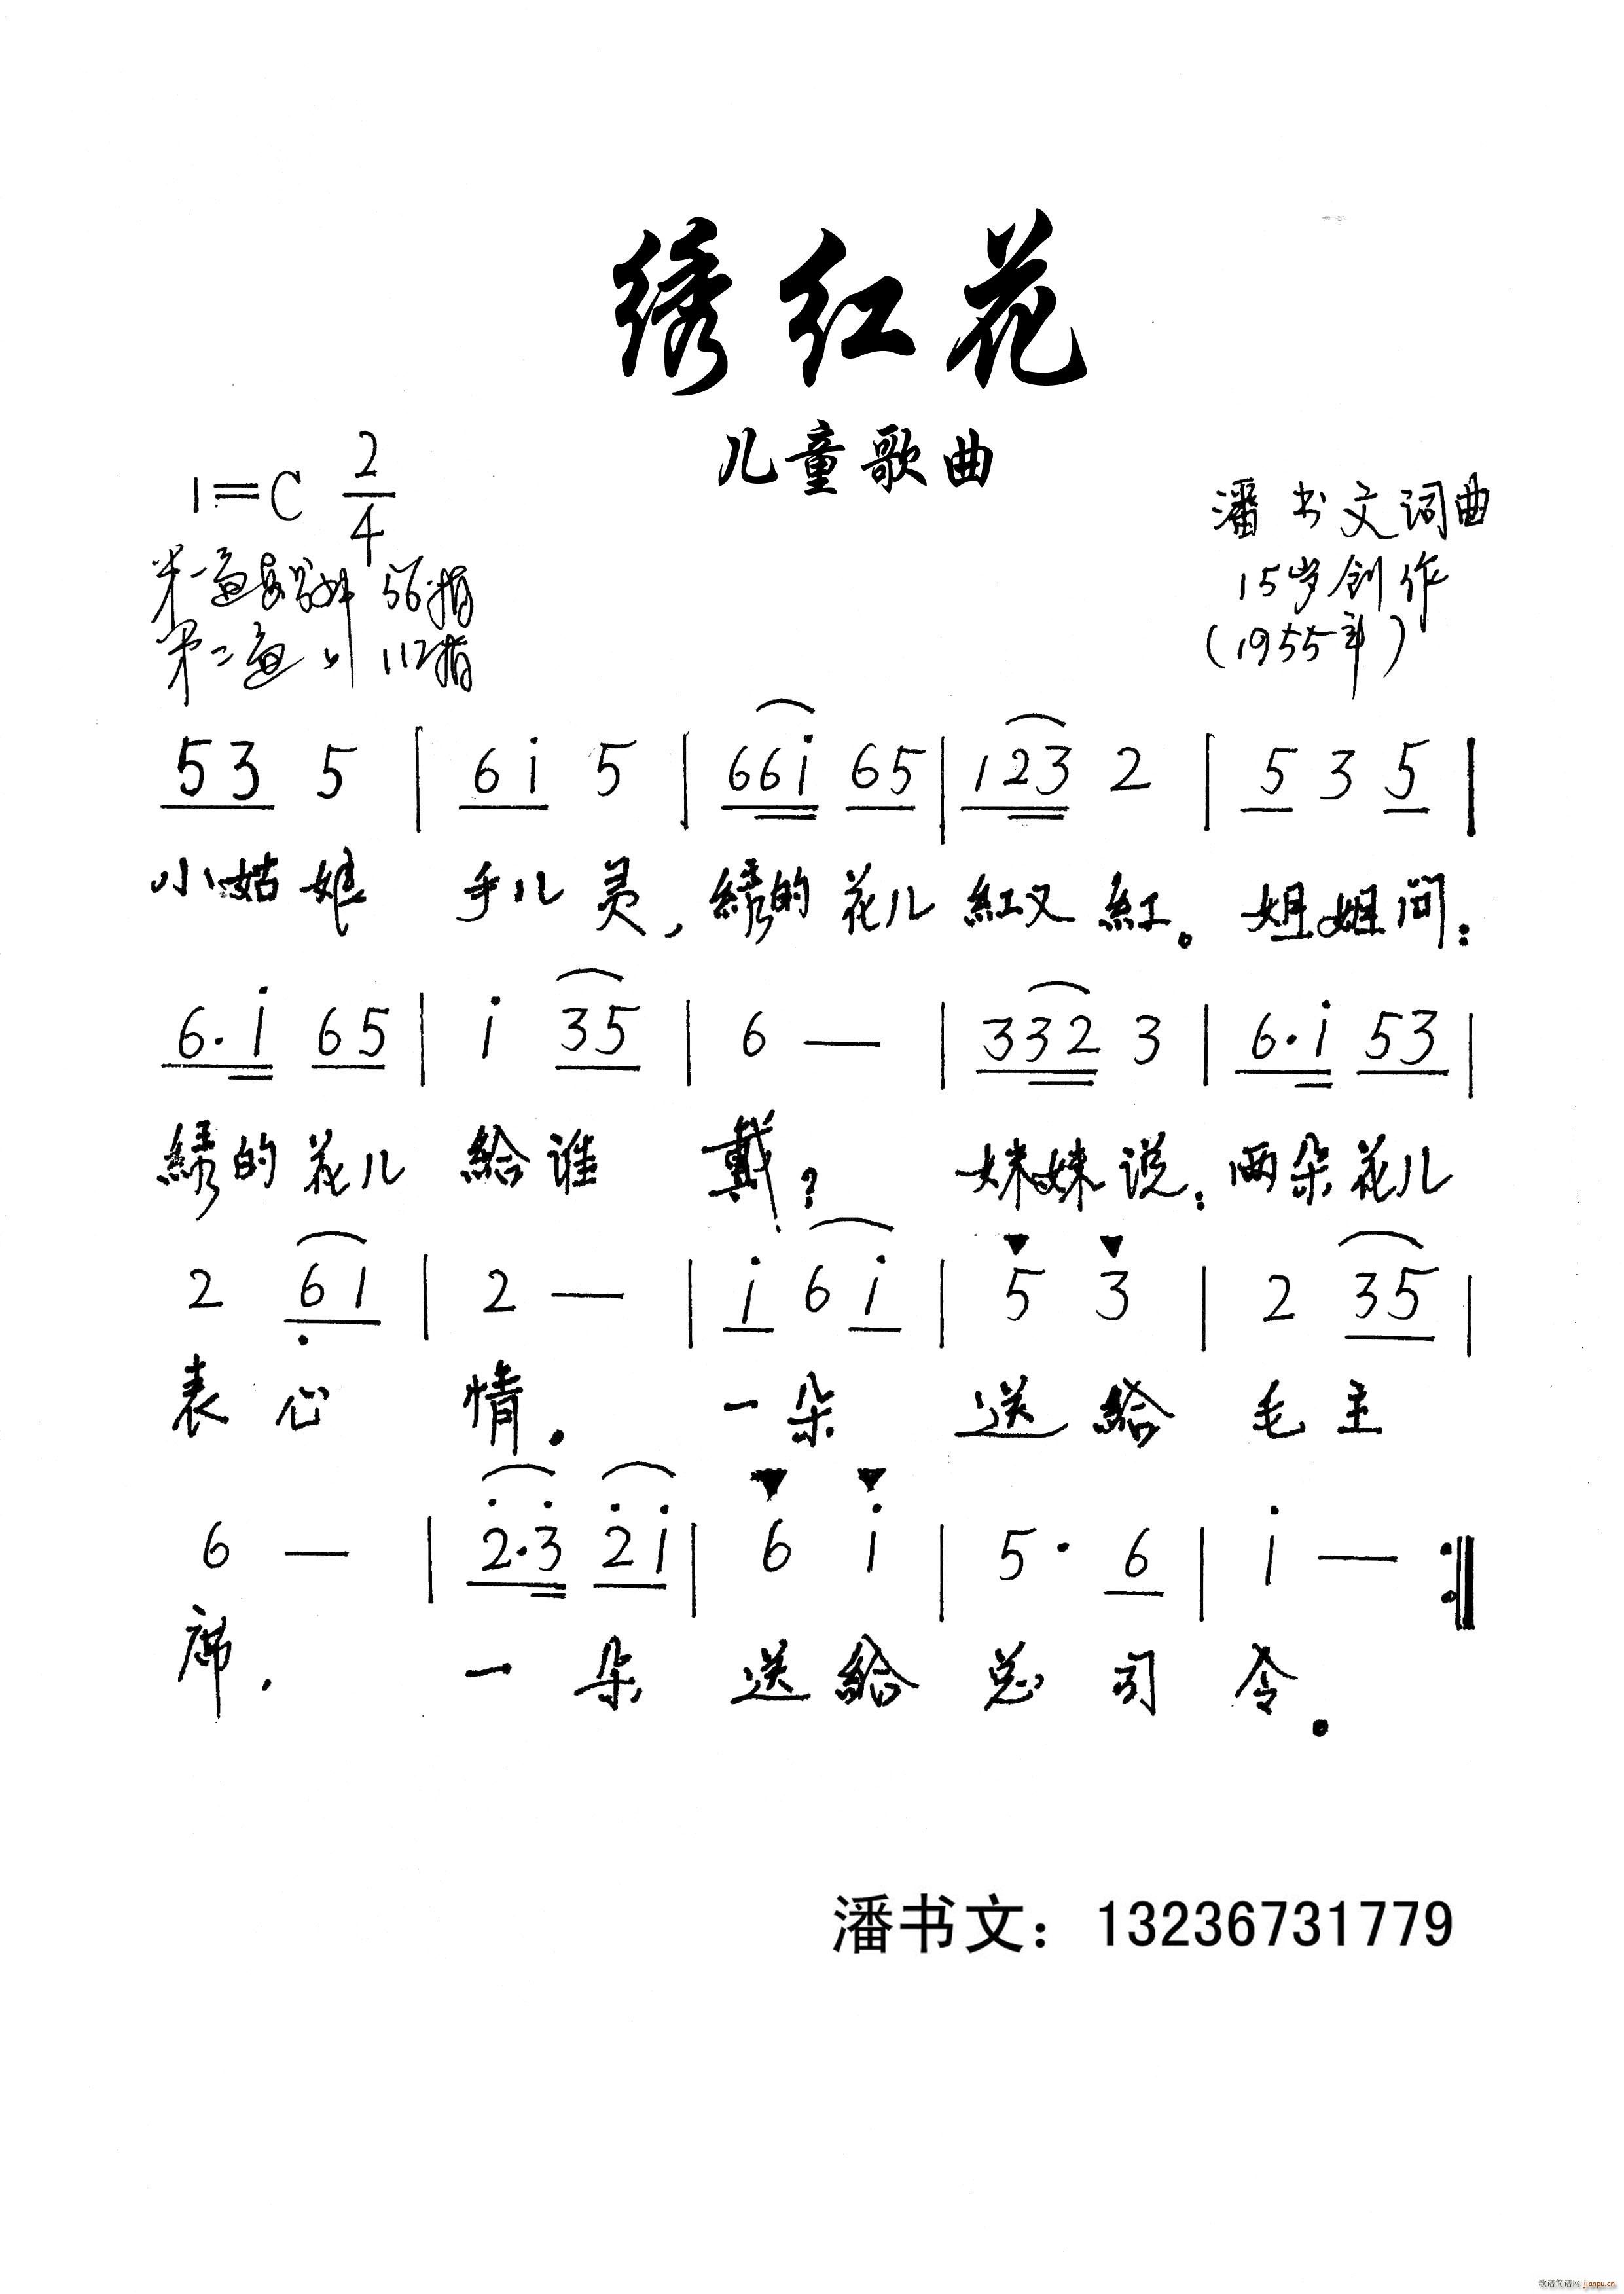 绣红花
儿童歌曲
1=C 2/4
潘书文词曲
15岁创作
(1955年)
第一遍 56拍
第二遍 〃 112拍
53 5 | 6i 5 | 66i 65 | 123 2 | 5 3 5 |
小姑娘 手儿灵,綉的花儿紅又紅。姐姐问:
6·i 65 | i 35 | 6 — | 332 3 | 6·i 53 |
綉的花儿 給谁 戴? 妹妹说:两朵花儿
2 61 | 2 — | i 6 i | 5 3 | 2 35 |
表心 情. 一朵 送給 毛主
6 — | 2·3 2i | 6 i | 5· 6 | i — :‖
席. 一朵 送給 总司令。
潘书文：13236731779
歌谱简谱网 jianpu.cn